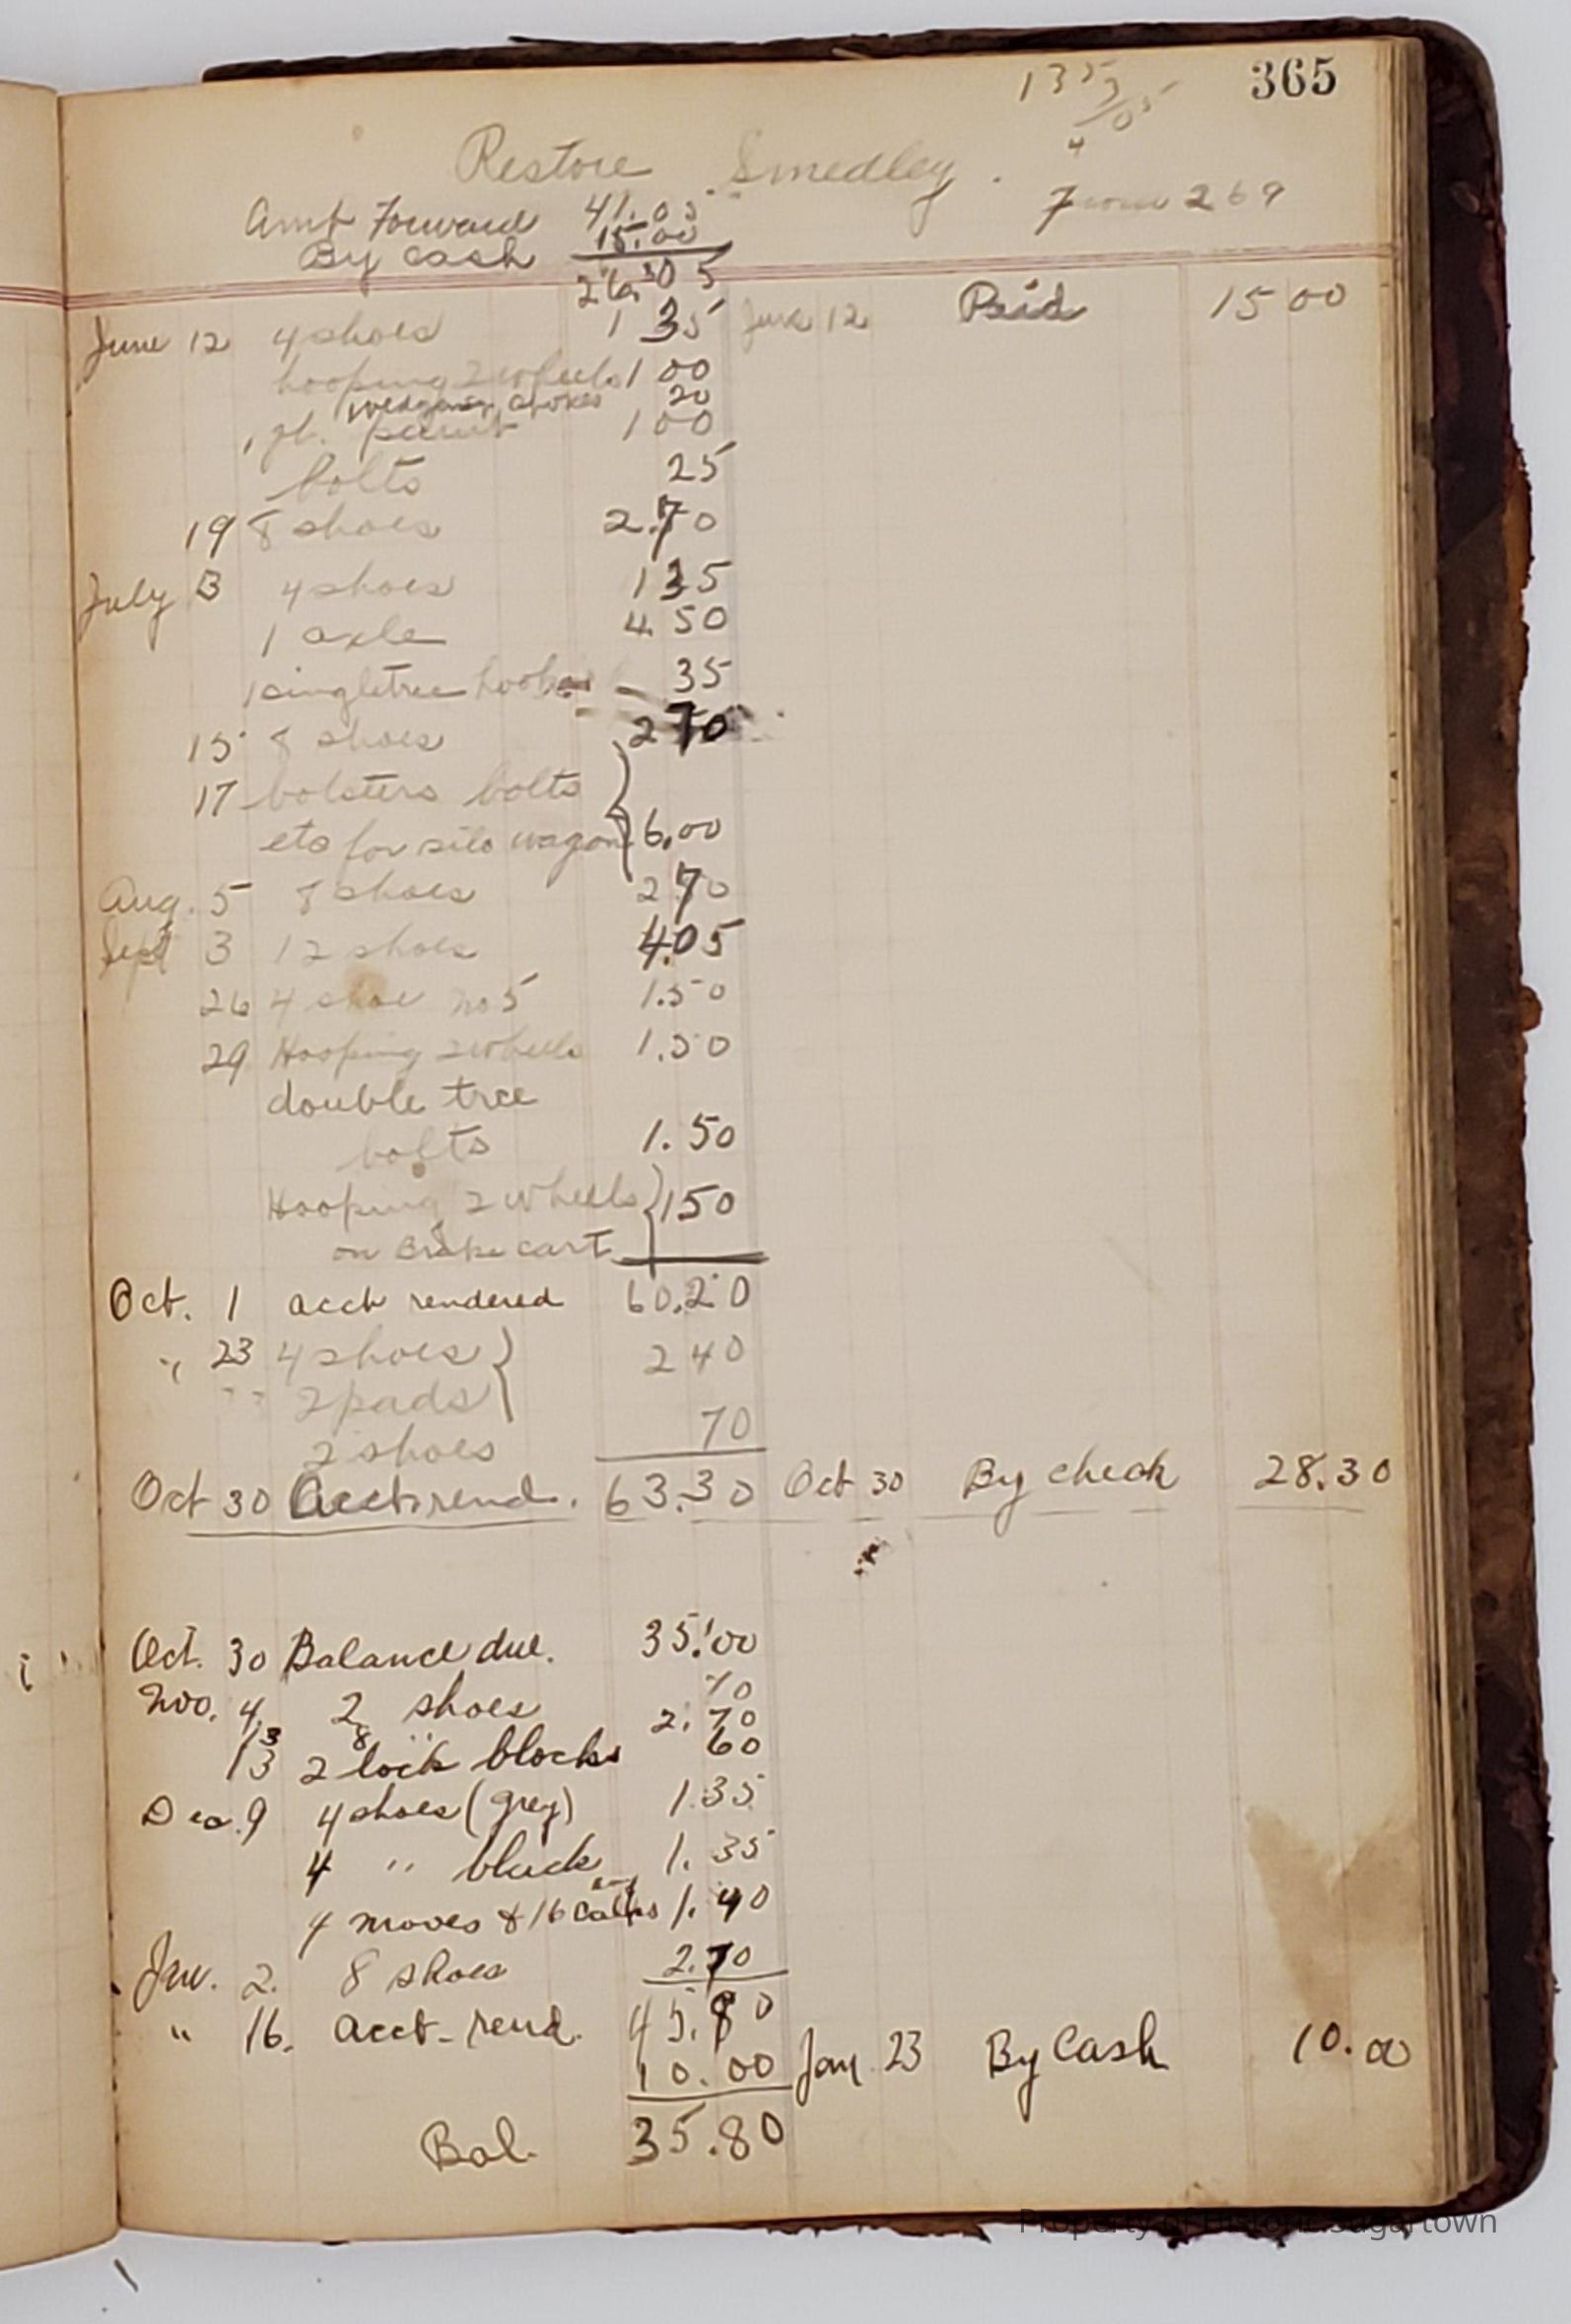 365
135
Restore Smedley.
From 269
Amt Forward 41.05
By Cash 15.00
26.05
June 12 4 shoes 1 35 June 12 Paid 15 00
hooping 2 wheels 1 00
wedging spokes 20
1 qt. paint 1 00
bolts 25
19 8 shoes 2.70
July 3 4 shoes 1 35
1 axle 4 50
1 singletree hook 35
15 8 shoes 2 70
17 bolsters bolts
etc for silo wagon 6.00
Aug. 5 8 shoes 2 70
Sept 3 12 shoes 4.05
26 4 shoe no 5 1.50
29 Hooping 2 wheels 1.50
double tree
bolts 1.50
Hooping 2 wheels 1 50
on Brake cart
Oct. 1 acct rendered 60.20
" 23 4 shoes 2 40
2 pads
2 shoes 70
Oct 30 Acct. rend. 63.30 Oct 30 By check 28.30
Oct. 30 Balance due. 35.00
Nov. 4 2 shoes 70
13 8 " 2.70
13 2 lock blocks 60
Dec. 9 4 shoes (grey) 1.35
4 " black 1.35
4 moves & 16 calks 1.40
Jan. 2. 8 shoes 2.70
" 16. acct. rend. 45.80
10.00 Jan 23 By Cash 10.00
Bal. 35.80
Property of Historic Sugartown